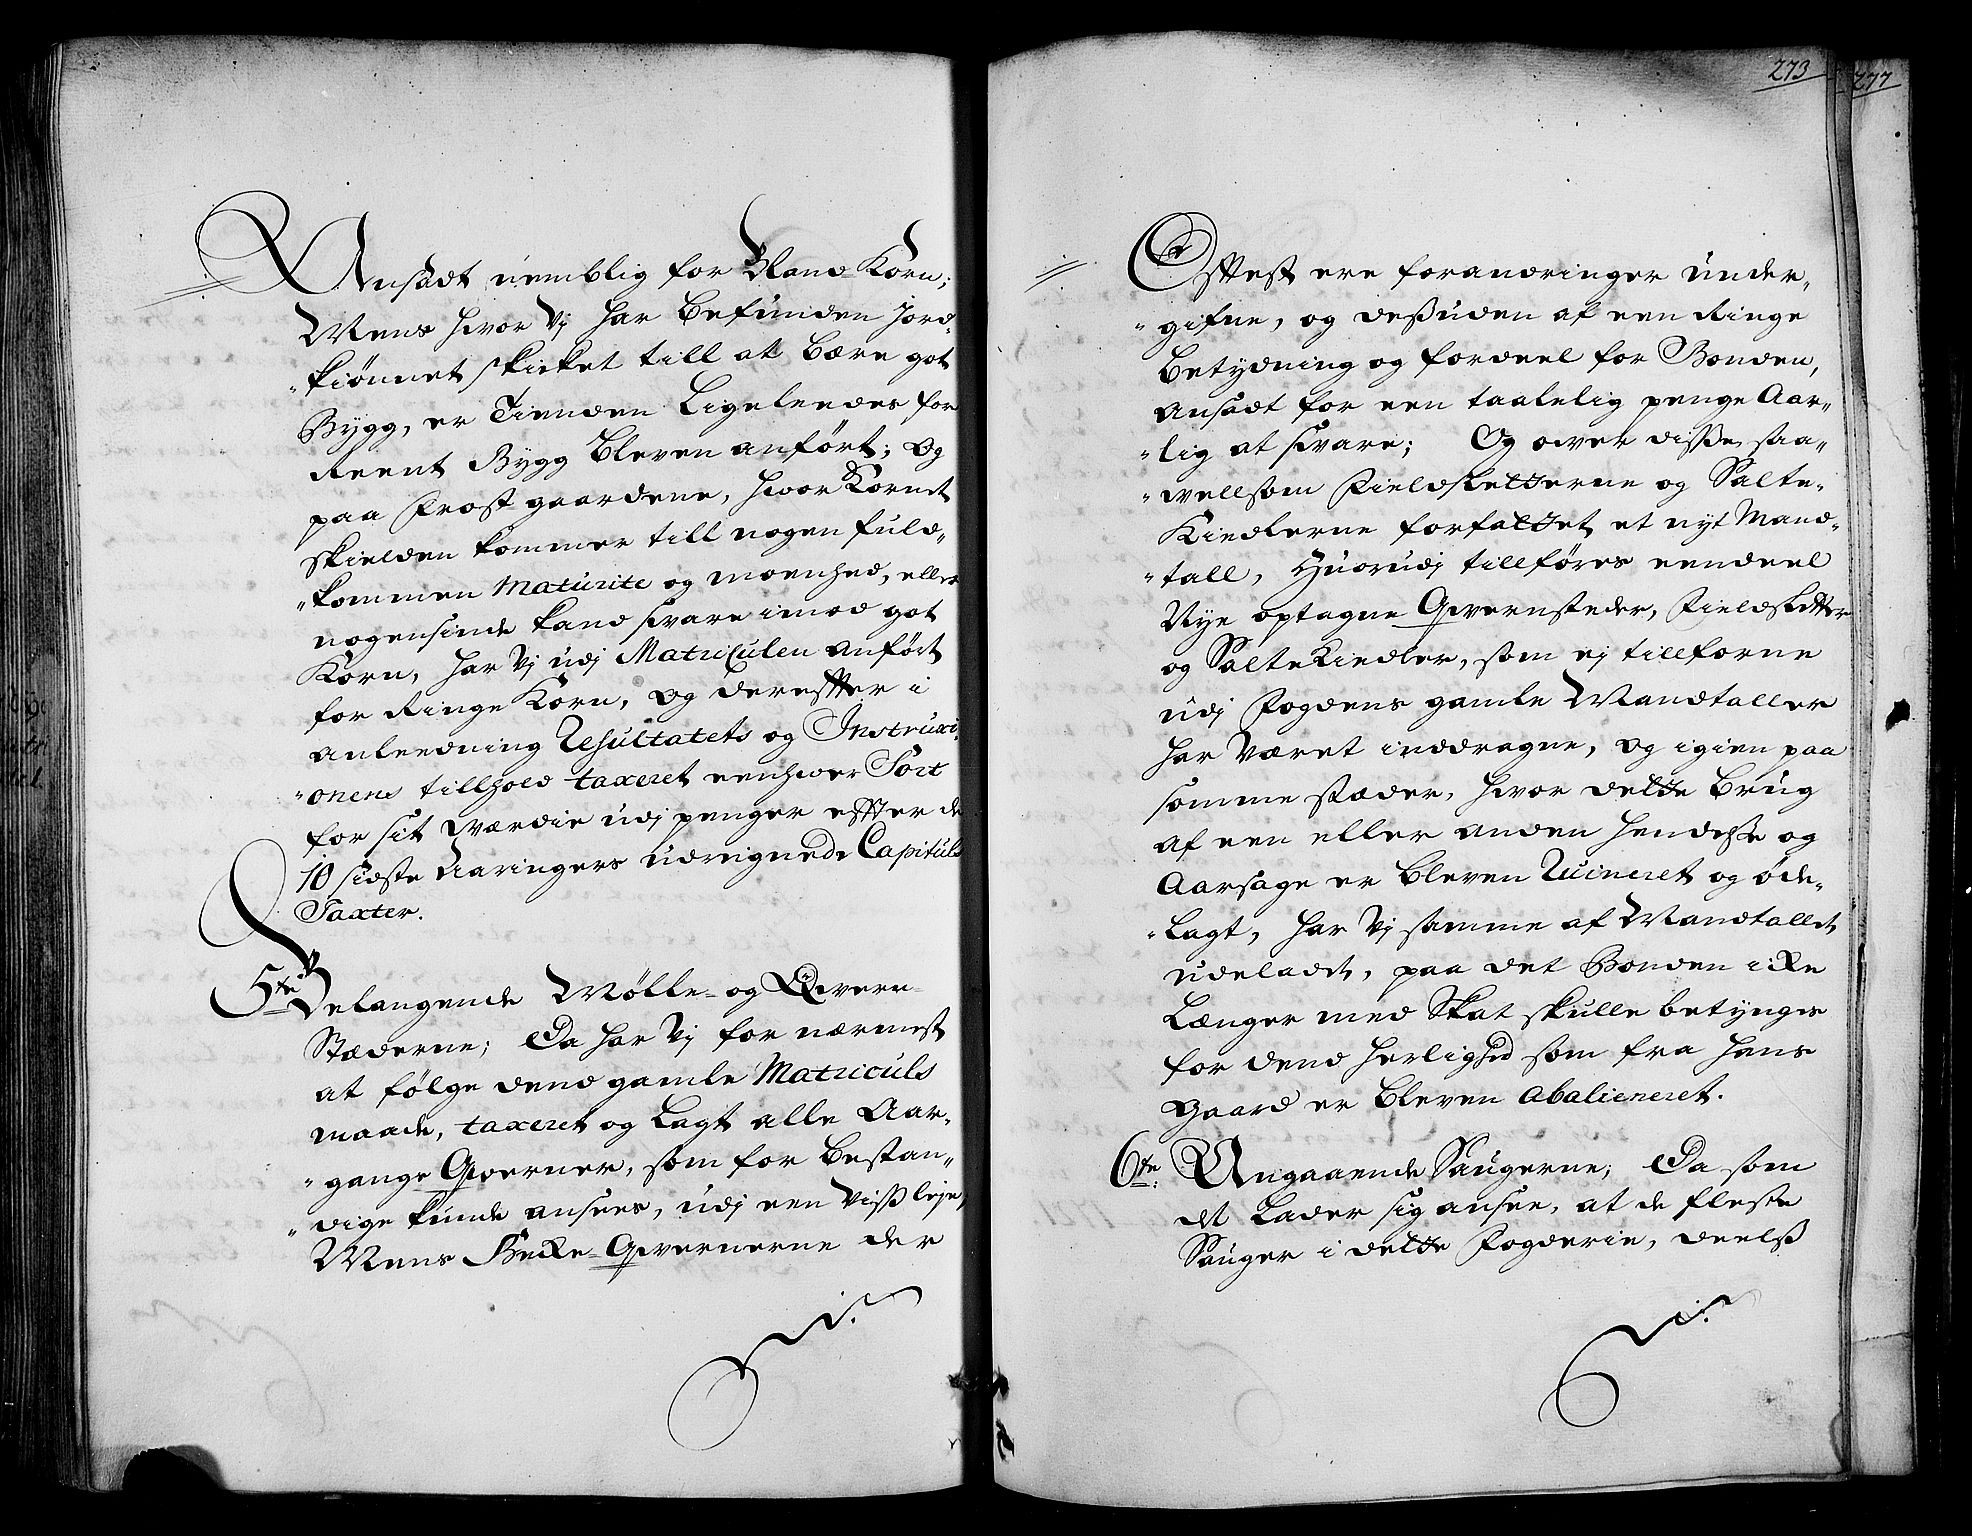 Ansadt nemblig for Bland-Korn;
Mens hvor Vj har befunden jord-
"kiønnet skicket till at bære got
Bygg, er Tienden Ligeleedes for
Reent Bygg bleven anført; Og
paa Frost gaardene, hvor Kornet
skielden kommer till nogen fuld-
"kommen Maturite og moenhed, eller
nogensinde kand svare imod got
Korn, har Vj udj Matriculen anført
for Ringe Korn, og derefter i
anleedning Resultatets og Instruxi-
"onens tillhold taxeret eenhver Sort
for sit Værdie udj penger efter de
10 sidste Aaringers udreignede Capituls
Taxter.
5te Belangende Mølle- og Qvern-
Stæderne; Da har Vj for nærmest
at følge dend gamle Matriculs
maade, taxeret og Lagt alle Aar-
"gange Qverner, som for bestan-
"dige kunde ansees, udj een Viss leje,
Mens Becke-Qvernerne der
273
277
Oftest ere forandringer under-
"gifne, og dessuden af een Ringe
betydning og fordeel for Bonden,
Ansadt for een taalelig penge Aar-
"lig at svare; Og over disse saa-
"vellsom Fieldsletterne og Salte-
Kiedlerne forfattet et nyt Mand-
"tall, Huorudj tillføres eendeel
Nye optagne Qvernsteder, Fieldsletter
og SalteKiedler, som ej tillforne
udj Fogdens gamle Mandtaller
har Været inddragne, og igien paa
somme stæder, hvor dette brug
af een eller anden hendelsse og
Aarsage er bleven Ruineret og øde-
"Lagt, har Vj samme af Mandtallet
udeladt, paa det Bonden icke
Længer med Skat skulle betynges
for dend herlighed som fra hans
Gaard er bleven abalieneret.
6te: Angaaende Saugerne; Da som
det Lader sig ansee, at de fleste
Sauger i dette Fogderie, deelss